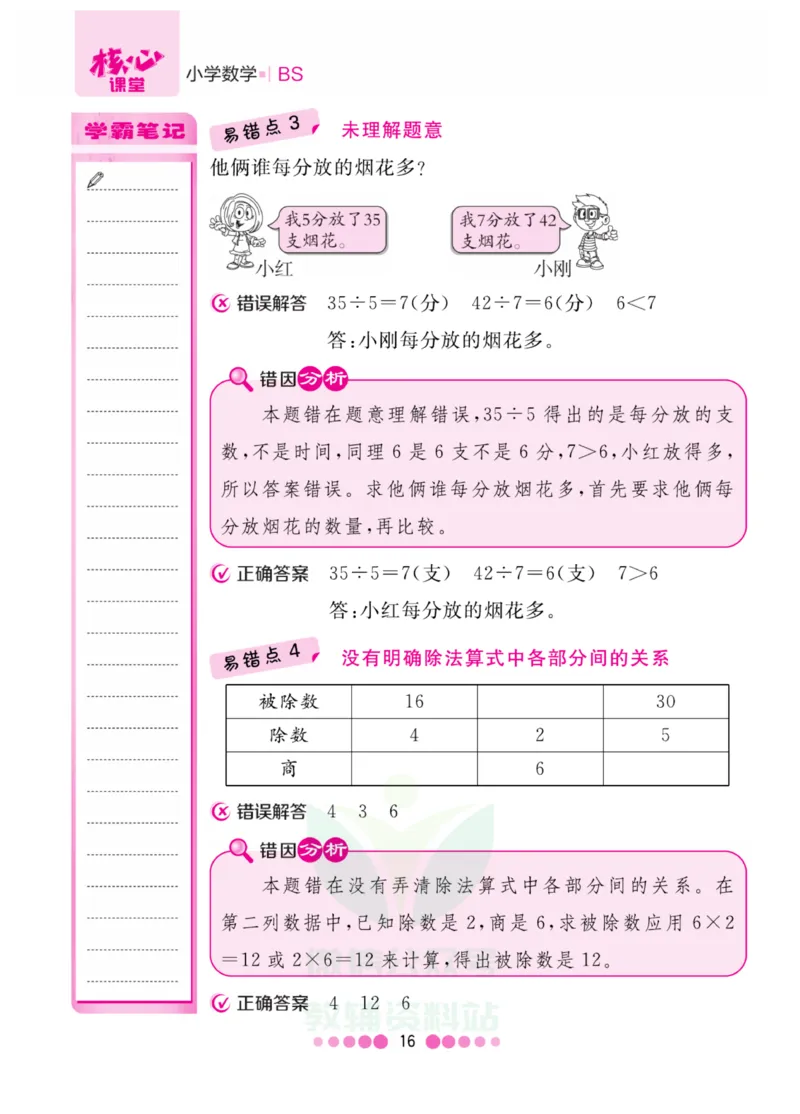 核心
课堂
小学数学 BS
学霸笔记
易错点 3 未理解题意
他俩谁每分放的烟花多?
我5分放了35
支烟花。
小红
我7分放了42
支烟花。
小刚
错误解答 35÷5=7(分) 42÷7=6(分) 6<7
答:小刚每分放的烟花多。
错因分析
本题错在题意理解错误,35÷5 得出的是每分放的支
数,不是时间,同理 6 是 6 支不是 6 分,7>6,小红放得多,
所以答案错误。求他俩谁每分放烟花多,首先要求他俩每
分放烟花的数量,再比较。
正确答案 35÷5=7(支) 42÷7=6(支) 7>6
答:小红每分放的烟花多。
易错点 4 没有明确除法算式中各部分间的关系
被除数 16 30
除数 4 2 5
商 6
错误解答 4 3 6
错因分析
本题错在没有弄清除法算式中各部分间的关系。在
第二列数据中,已知除数是 2,商是 6,求被除数应用 6×2
=12 或 2×6=12 来计算,得出被除数是 12。
正确答案 4 12 6
教辅资料站
16